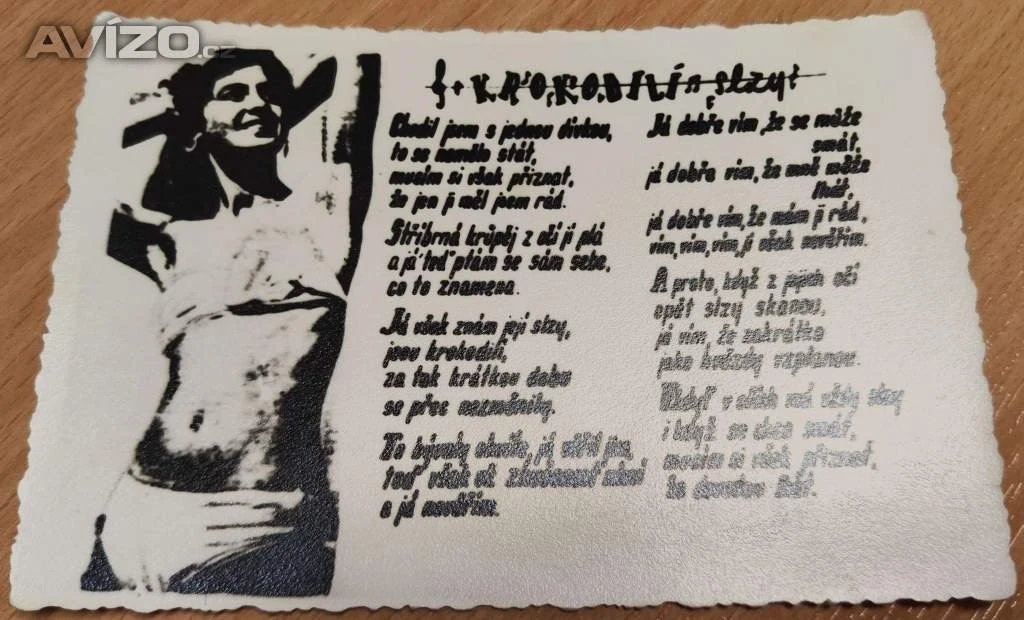 AVÍZO.cz
KROKODILÍ slzy
Chodil jsem s jednou dívkou,
to se nemělo stát,
musím si však přiznat,
že jen ji měl jsem rád.
Stříbrná krůpěj z očí jí plá
a já teď ptám se sám sebe,
co to znamena.
Já však znám její slzy,
jsou krokodilí,
za tak krátkou dobu
se přec nezměnily.
To bývaly chvíle, já věřil jim,
teď však
a já nevěřím.
Já dobře vím, že se může
smát,
já dobře vím, že mně může
lhát,
já dobře vím, že mám ji rád,
vím, vím, vím, jí však nevěřím.
A proto, když z jejích očí
opět slzy skanou,
já vím, že zakrátko
jako hvězdy vzplanou.
Vždyť v očích má vždy slzy
i když se chce smát,
musím si však přiznat,
že dovedou lhát.